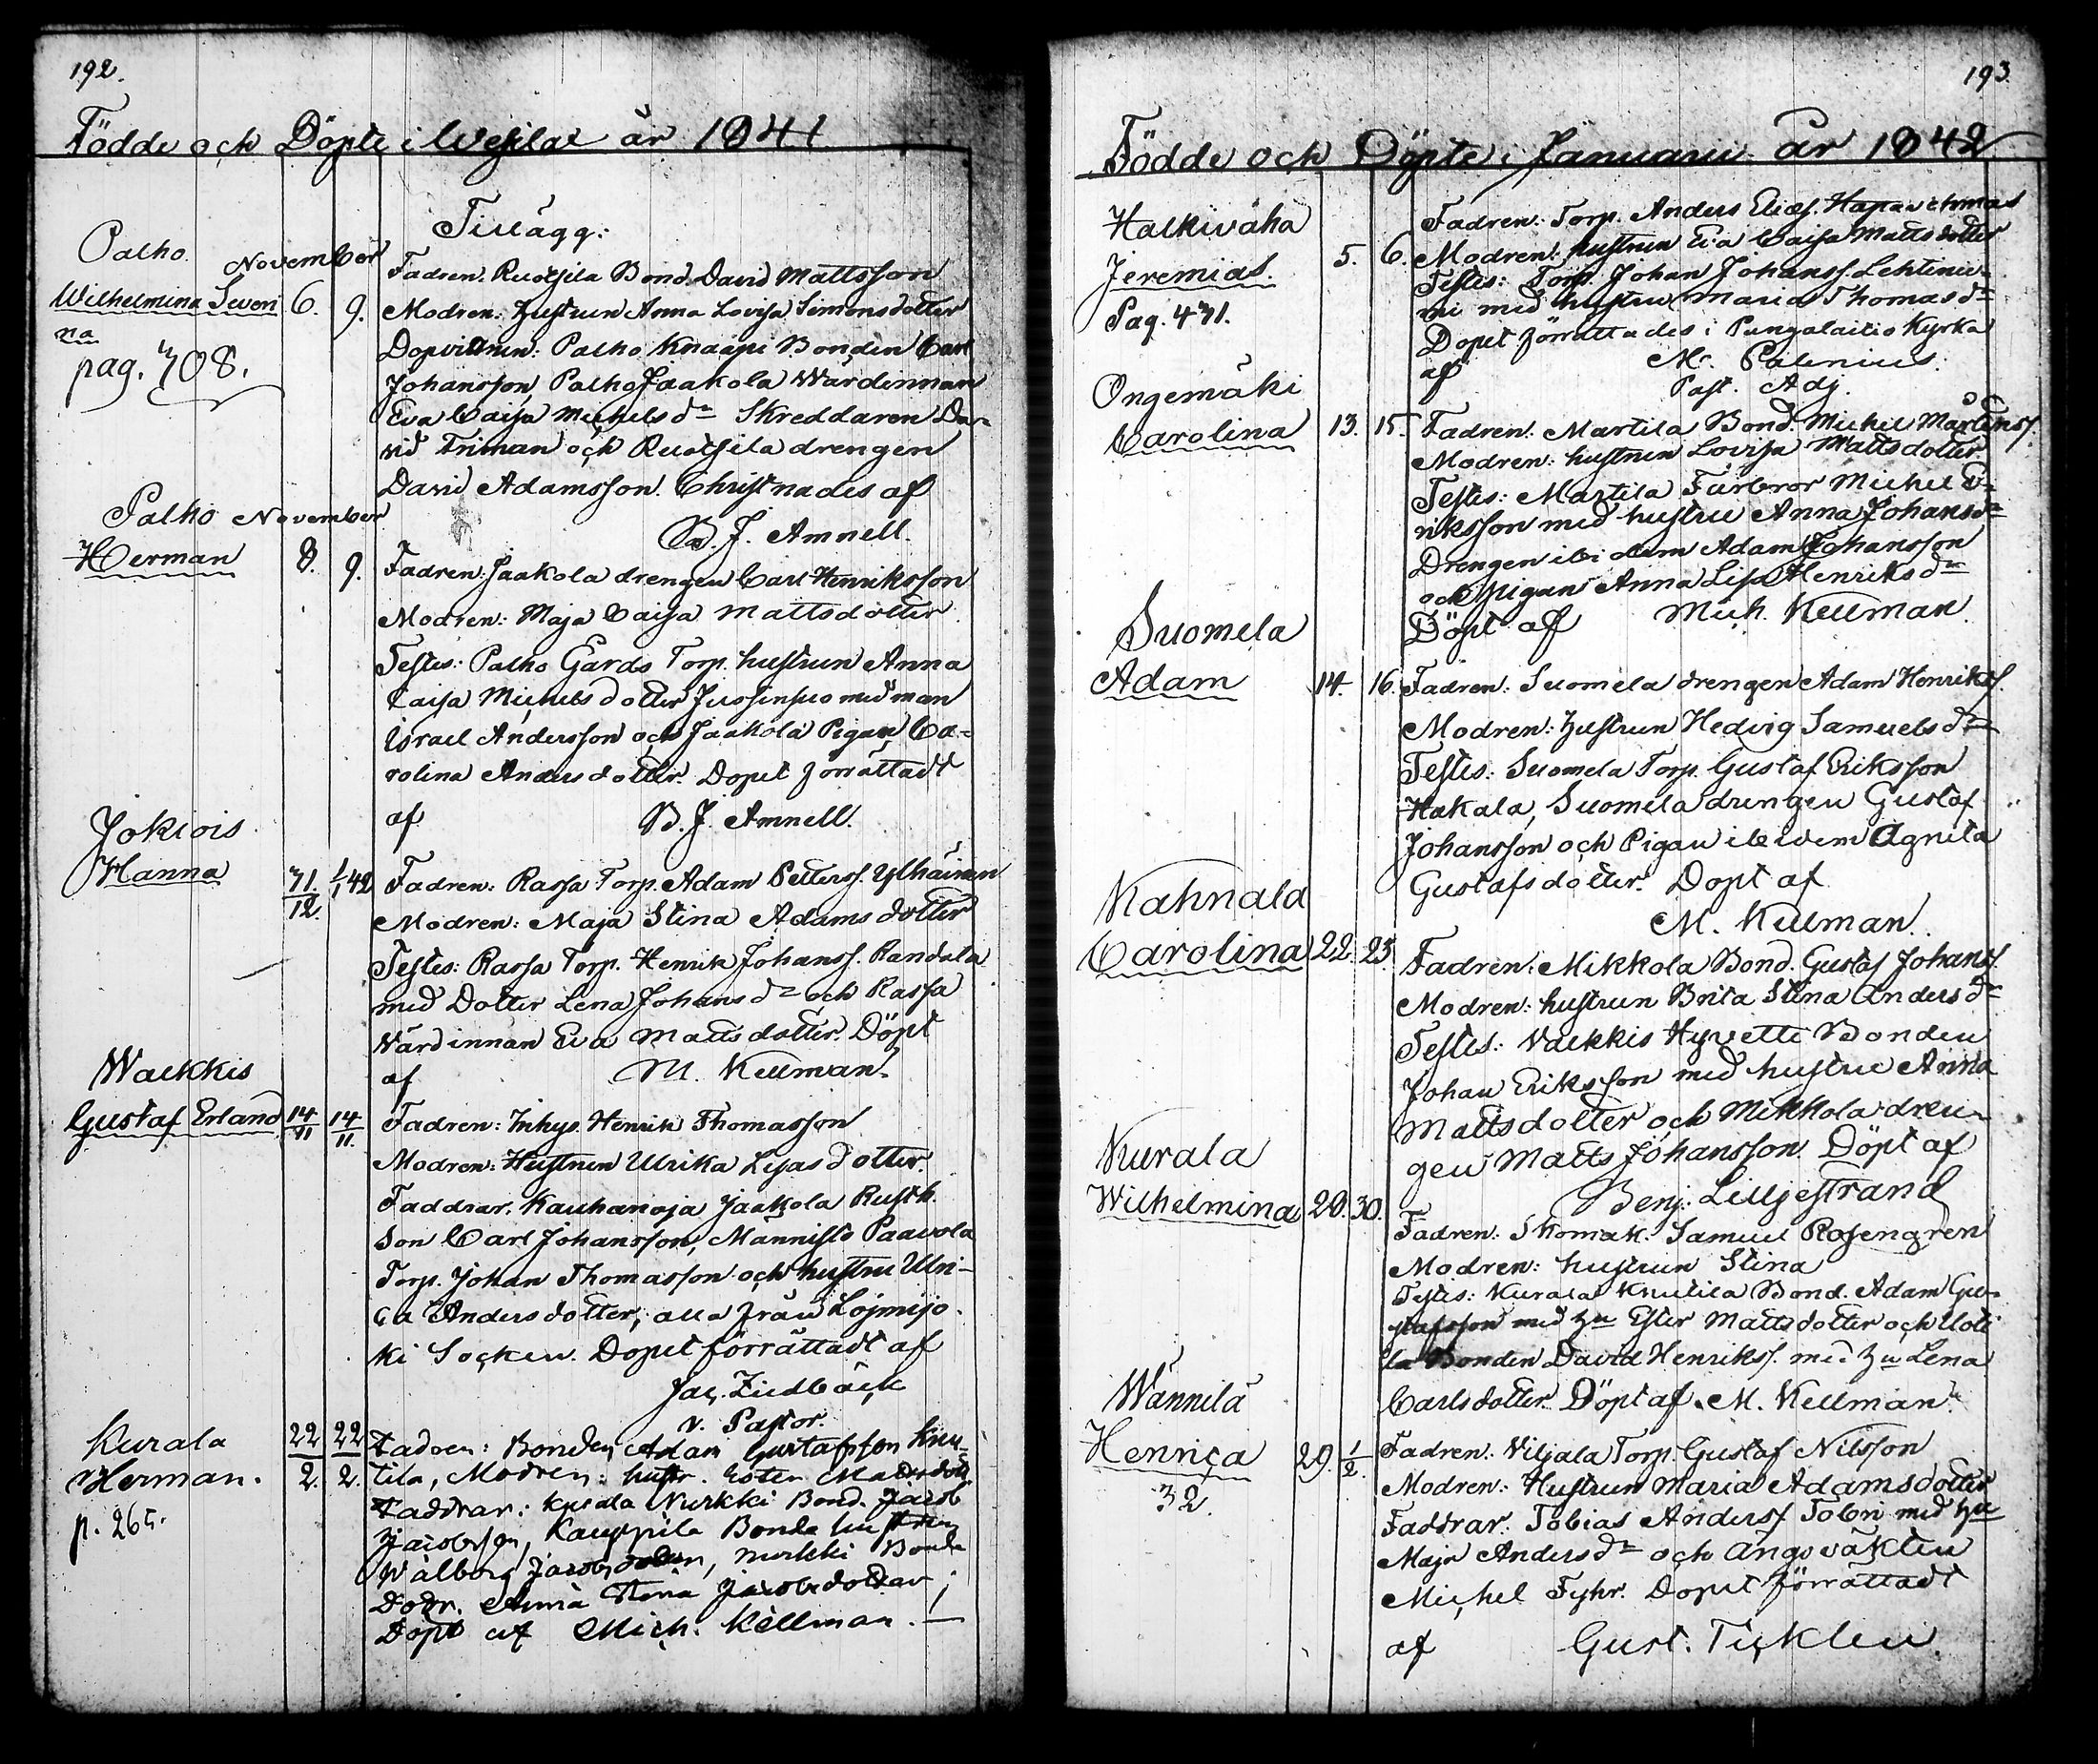 192.
Födde och Döpte i Wesilax år 1841
Tillägg:
Palho. November
Wilhelmina Severi 6. 9.
na
pag. 708.
Fadren: Ruotsila Bond. David Mattsson
Modren: Hustrun Anna Lovisa Simonsdotter
Dopvittnen: Palho Knaapi Bonden Carl
Johansson, Palho Jaakola Wärdinnan
Eva Caisa Michelsdr Skreddaren Da-
vid Friman och Ruotsila drengen
David Adamsson. Christnades af
B. J. Amnell.
Palho November
Herman 8. 9.
Fadren: Jaakola drengen Carl Henriksson
Modren: Maja Caisa Mattsdotter
Testes: Palho Gårds Torp. hustrun Anna
Caisa Michelsdotter Jussinsuo med man
Israel Andersson och Jaakola Pigan Ca-
rolina Andersdotter. Dopet förrättadt
af B. J. Amnell.
Jokiois
Hanna 31./12. 1/1 42
Fadren: Rassa Torp. Adam Petterss. Ylhäinen
Modren: Maja Stina Adamsdotter
Testes: Rassa Torp. Henrik Johanss. Randala
med Dotter Lena Johansdr och Rassa
Wärdinnan Eva Mattsdotter. Döpt
af M. Kellman.
Waekkis
Gustaf Erland 14/11 14/11.
Fadren: Inhys. Henrik Thomasson
Modren: Hustrun Ulrika Lisasdotter.
Faddrar: Kauhanoja Jaakola Rusth.
Son Carl Johansson, Männistö Paavola
Torp. Johan Thomasson och hustru Ulri-
ca Andersdotter, alla från Lojmijo-
ki Socken. Dopet förrättadt af
Jac. Zidbäck
v. Pastor.
Kurala
Herman. 22/2. 22/2.
p. 265.
Fadren: Bonden Adam Gustafsson Knu-
tila, Modren: hustr. Ester Mattsdott.
Faddrar: Kurala Nurkki Bond. Jacob
Jacobsson, Kauppila Bonde hustrun
Wålborg Jacobsdotter, Nurkki Bonde
Dodr. Anna Stina Jacobsdotter;
Döpt af Mich. Kellman.
193.
Födde och Döpte i Januarii år 1842
Halkivaha
Jeremias. 5. 6.
Pag. 431.
Fadren: Torp. Anders Eliæs. Hapavehmas
Modren: hustrun Eva Caisa Mattsdotter
Testes: Torp. Johan Johanss. Lehtinie-
mi med hustru Maria Thomasdr
Dopet förrättades i Pungalaitio Kyrka
af M. Palenius.
Past. Adj.
Ongemäki
Carolina 13. 15.
Fadren: Martila Bond. Michel Mårtenss.
Modren: hustrun Lovisa Mattsdotter.
Testes: Martila Farbror Michel E-
riksson med hustru Anna Johansdr
Drengen ibidem Adam Johansson
och Pigan Anna Lisa Henriksdr
Döpt af Mich. Kellman.
Suomela
Adam 14. 16.
Fadren: Suomela drengen Adam Henrikss.
Modren: Hustrun Hedvig Samuelsdr
Testes: Suomela Torp. Gustaf Eriksson
Hakala, Suomela drengen Gustaf
Johansson och Pigan ibidem Agneta
Gustafsdotter. Döpt af
M. Kellman.
Kahnala
Carolina 22. 23.
Fadren: Mikkola Bond. Gustaf Johanss.
Modren: hustrun Brita Stina Andersdr
Testes: Vaekkis Hyvetti Bonden
Johan Eriksson med hustru Anna
Mattsdotter och Mikkola dren-
gen Matts Johansson. Döpt af
Benj. Lilljestrand
Kurala
Wilhelmina 29. 30.
Fadren: Skomak. Samuel Rosengren
Modren: hustrun Stina
Testes: Kurala Knutila Bond. Adam Gu-
stafsson med hu Ester Mattsdotter och Uoti
la Bonden David Henrikss. med hu Lena
Carlsdotter. Döpt af M. Kellman.
Wännilä
Henrica 29. 1/2.
32.
Fadren: Viljala Torp. Gustaf Nilsson
Modren: Hustrun Maria Adamsdotter
Faddrar: Tobias Anderss. Tobri med hu
Maja Andersdr och ängsväkten
Michel Fyhr. Dopet förrättadt
af Gust. Ticklen.